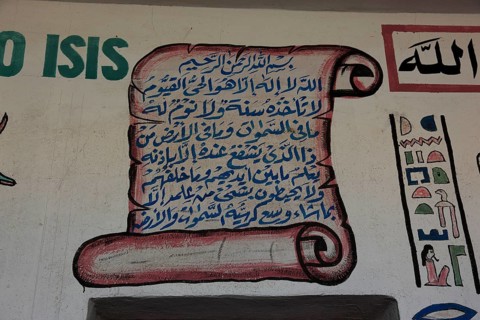 O ISIS
بسم الله الرحمن الرحيم
الله لا إله إلا هو الحي القيوم
لا تأخذه سنة ولا نوم له
ما في السموات وما في الأرض من
ذا الذي يشفع عنده إلا بإذنه
يعلم ما بين أيديهم وما خلفهم
ولا يحيطون بشيء من علمه إلا
بما شاء وسع كرسيه السموات والأرض
الله